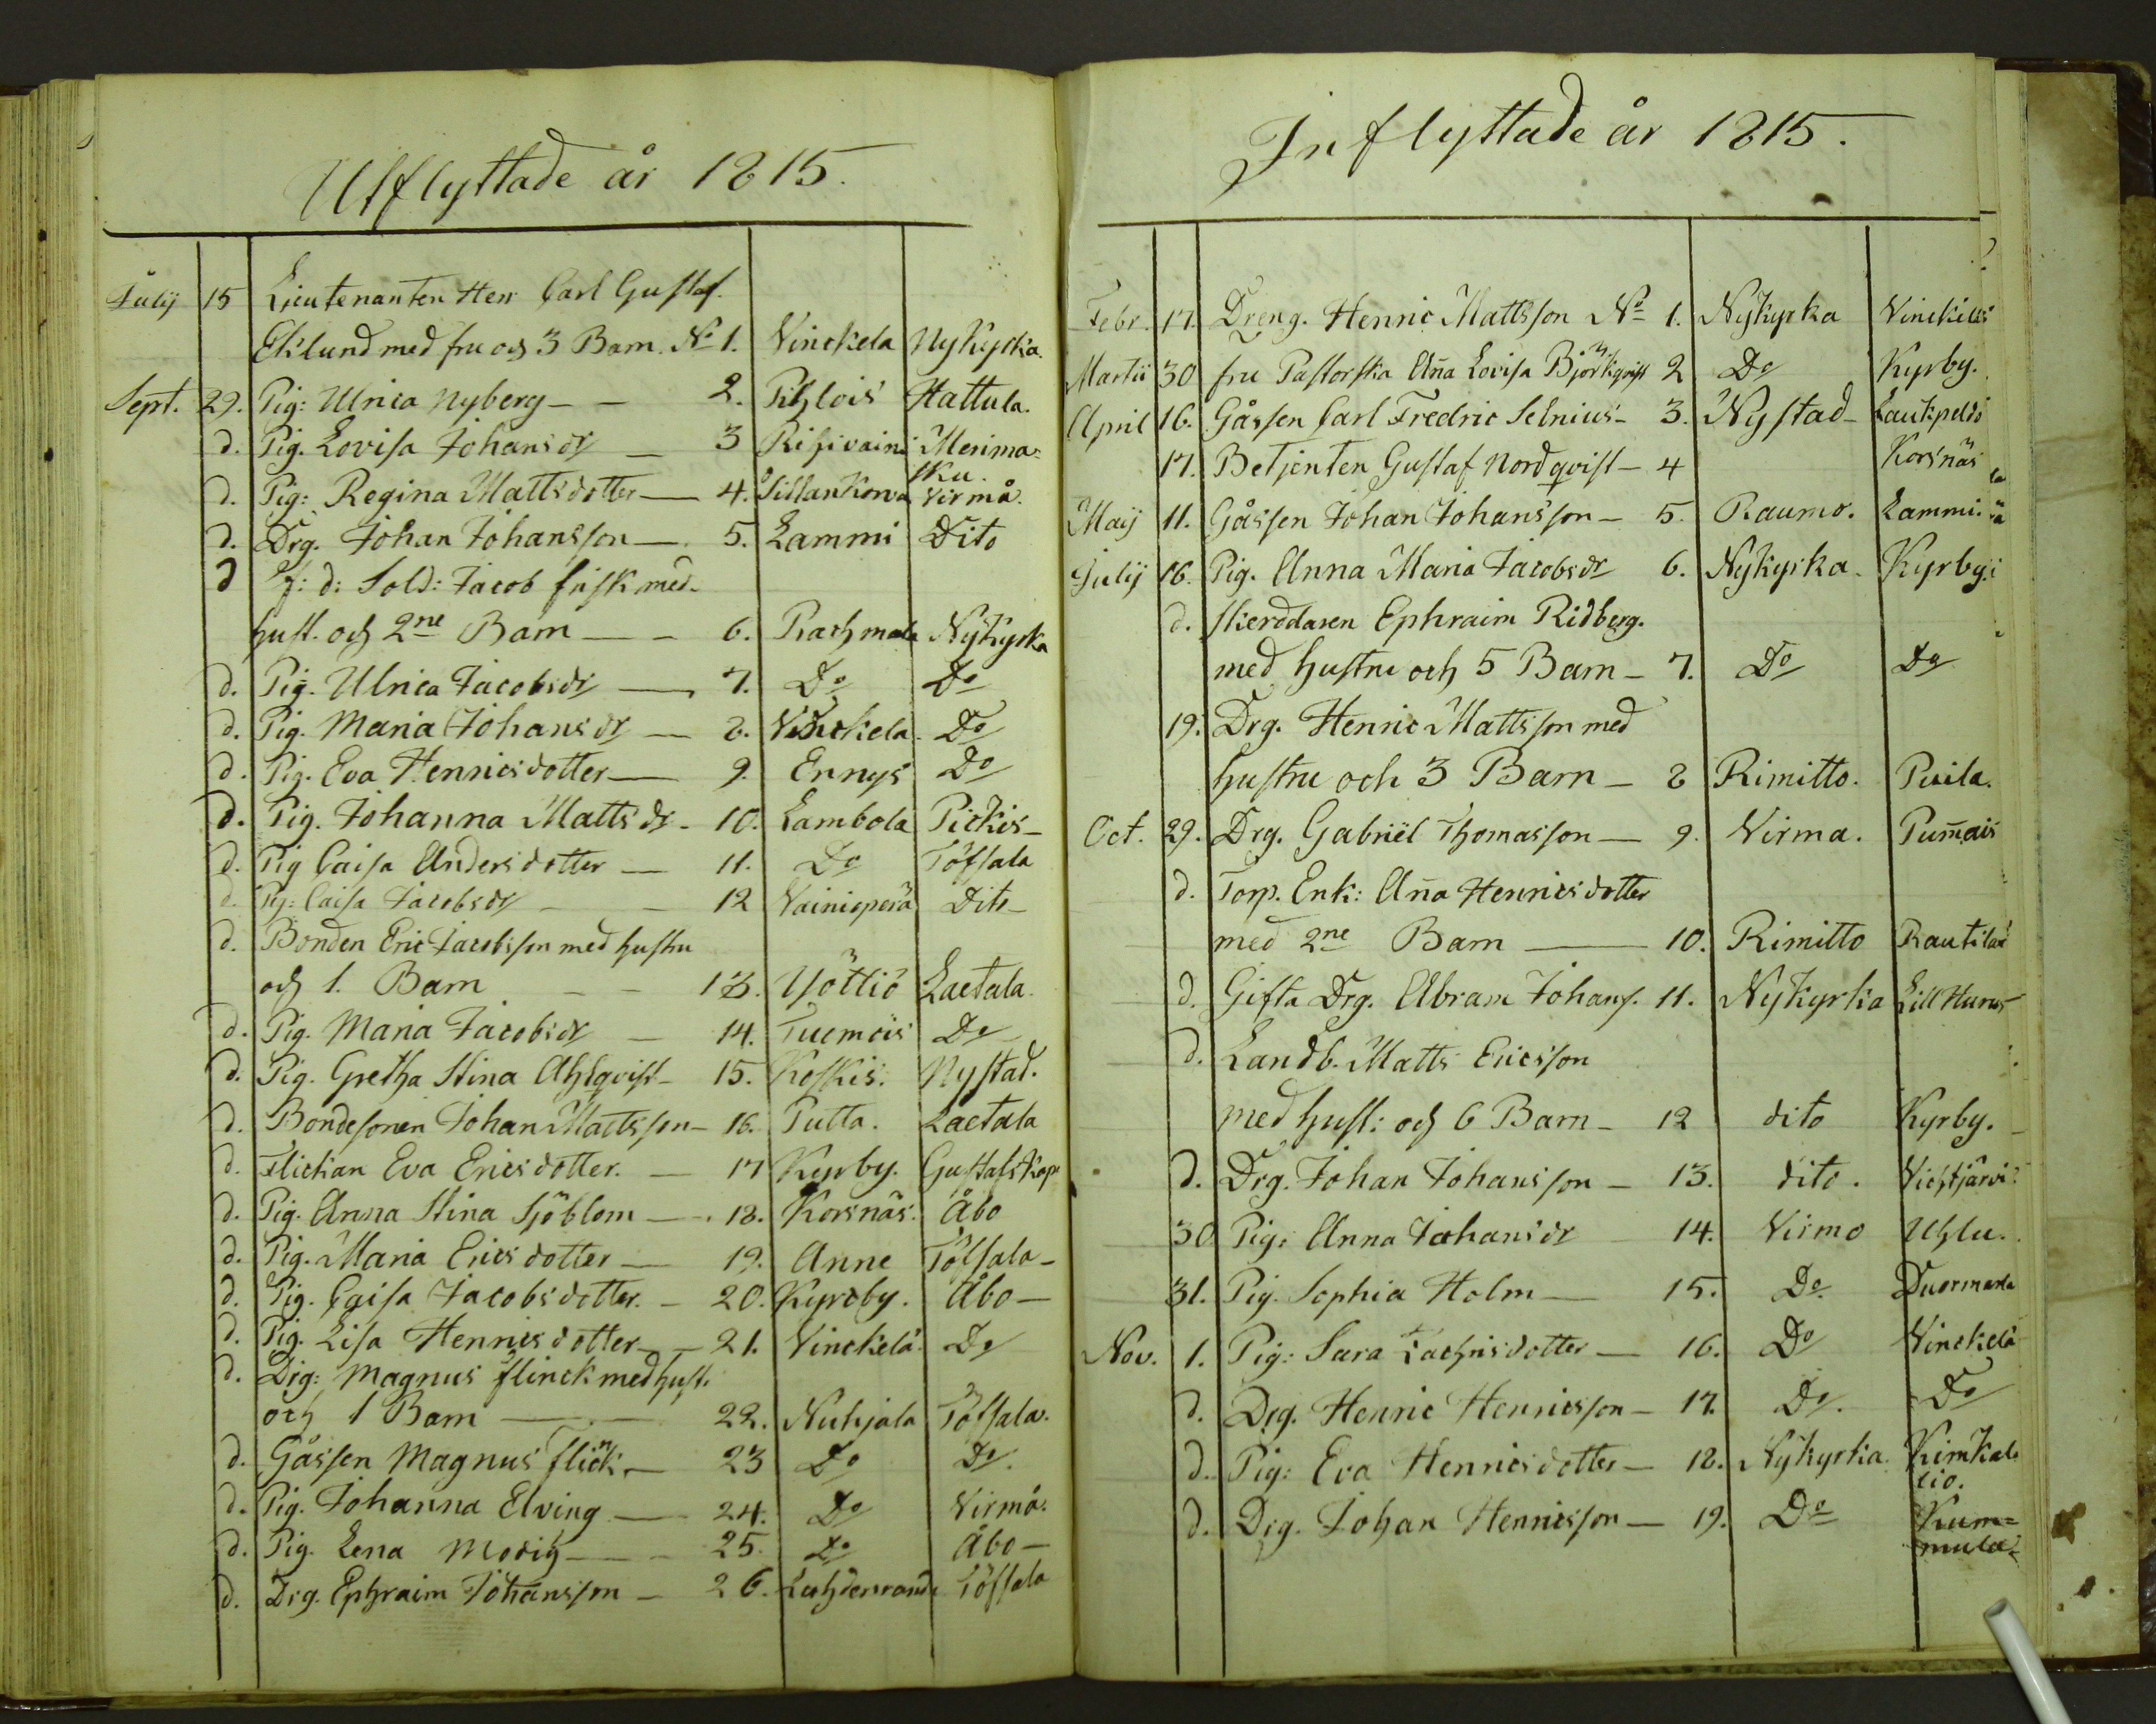 Utflyttade år 1815.
Julij 15 Lieutenanten Herr Carl Gustaf
Eklund med fru och 3 Barn. No 1. Vinckela Nykyrka.
Sept. 29. Pig: Ulrica Nyberg — — 2. Pihlois Hattula.
d. Pig. Lovisa Johansdr — 3 Rihivaini Merima=
sku.
d. Pig: Regina Mattsdotter — 4. Sillankorva Virmå.
d. Drg. Johan Johansson — 5. Lammi Dito
d f: d: Sold: Jacob frisk med
hust. och 2ne Barn — — 6. Rachmala Nykyrka
d. Pig. Ulrica Jacobsdr — 7. Do Do
d. Pig. Maria Johansdr — 8. Vinckela. Do
d. Pig. Eva Henricsdotter — 9. Ennys Do
d. Pig. Johanna Mattsdr — 10. Lambola Pickis —
d. Pig Caisa Andersdotter — 11. Do Töfsala
d. Pig: Caisa Jacobsdr — — 12 Vainioperä Dito —
d. Bonden Eric Jacobsson med hustru
och 1. Barn — — 13. Yöttiö Laetala.
d. Pig. Maria Jacobsdr — 14. Tuemois Do
d. Pig. Gretha Stina Ahlqvist — 15. Koskis. Nystad.
d. Bondesonen Johan Mattsson — 16. Putta. Laetala
d. Flickan Eva Ericsdotter. — 17 Kyrby. Gustafs Kap
d. Pig. Anna Stina Sjöblom — 18. Korsnäs. Åbo
d. Pig. Maria Ericsdotter — 19. Anne Töfsala —
d. Pig. Caisa Jacobsdotter. — 20. Kyroby. Åbo —
d. Pig. Lisa Henricsdotter — 21. Vinckelä. Do
d. Drg: Magnus flinck med hust.
och 1 Barn — — 22. Nuhjala Töfsala.
d. Gåssen Magnus flinck — 23 Do Do.
d. Pig. Johanna Elving — 24. Do Virmå.
d. Pig. Lena Modig — — 25. Do Åbo —
d. Drg. Ephraim Johansson — 26. Lahdenranda Töfsala
Inflyttade år 1815.
Febr. 17. Dreng. Henric Mattsson No 1. Nykyrka Vinckilä
Martii 30 fru Pastorska Aña Lovisa Björkqvist 2 Do Kyrby.
April 16. Gåssen Carl Fredric Selnius — 3. Nystad — Laukpeldo
17. Betjenten Gustaf Nordqvist — 4 Korsnäs
Maij 11. Gåssen Johan Johansson — 5. Raumo. Lammi.
Julij 16. Pig. Anna Maria Jacobsdr 6. Nykyrka. Kyrby.
d. skerddaren Ephraim Ridberg.
med hustru och 5 Barn — 7. Do Do
19. Drg. Henric Mattsson med
hustru och 3 Barn — 8 Rimitto. Puila.
Oct. 29. Drg. Gabriel Thomasson — 9. Virma. Pum̃ais
d. Torp. Enk: Aña Henricsdotter
med 2ne Barn — 10. Rimitto Rautila
d. Gifta Drg. Abram Johans. 11. Nykyrka Lill Hurus
d. Landb. Matts Ericsson
med hust: och 6 Barn — 12 dito Kyrby.
d. Drg. Johan Johansson — 13. dito. Viohtjärvi
30 Pig: Anna Johansdr 14. Virmo Uhlu.
31. Pig. Sophia Holm — 15. Do Duormala
Nov. 1. Pig: Sara Zachrisdotter — 16. Do Vinckelä
d. Drg. Henric Henricsson — 17. Do. Do
d. Pig: Eva Henricsdotter — 18. Nykyrka. Kimkal
lio.
d. Drg. Johan Henricsson — 19. Do Kum=
mula.